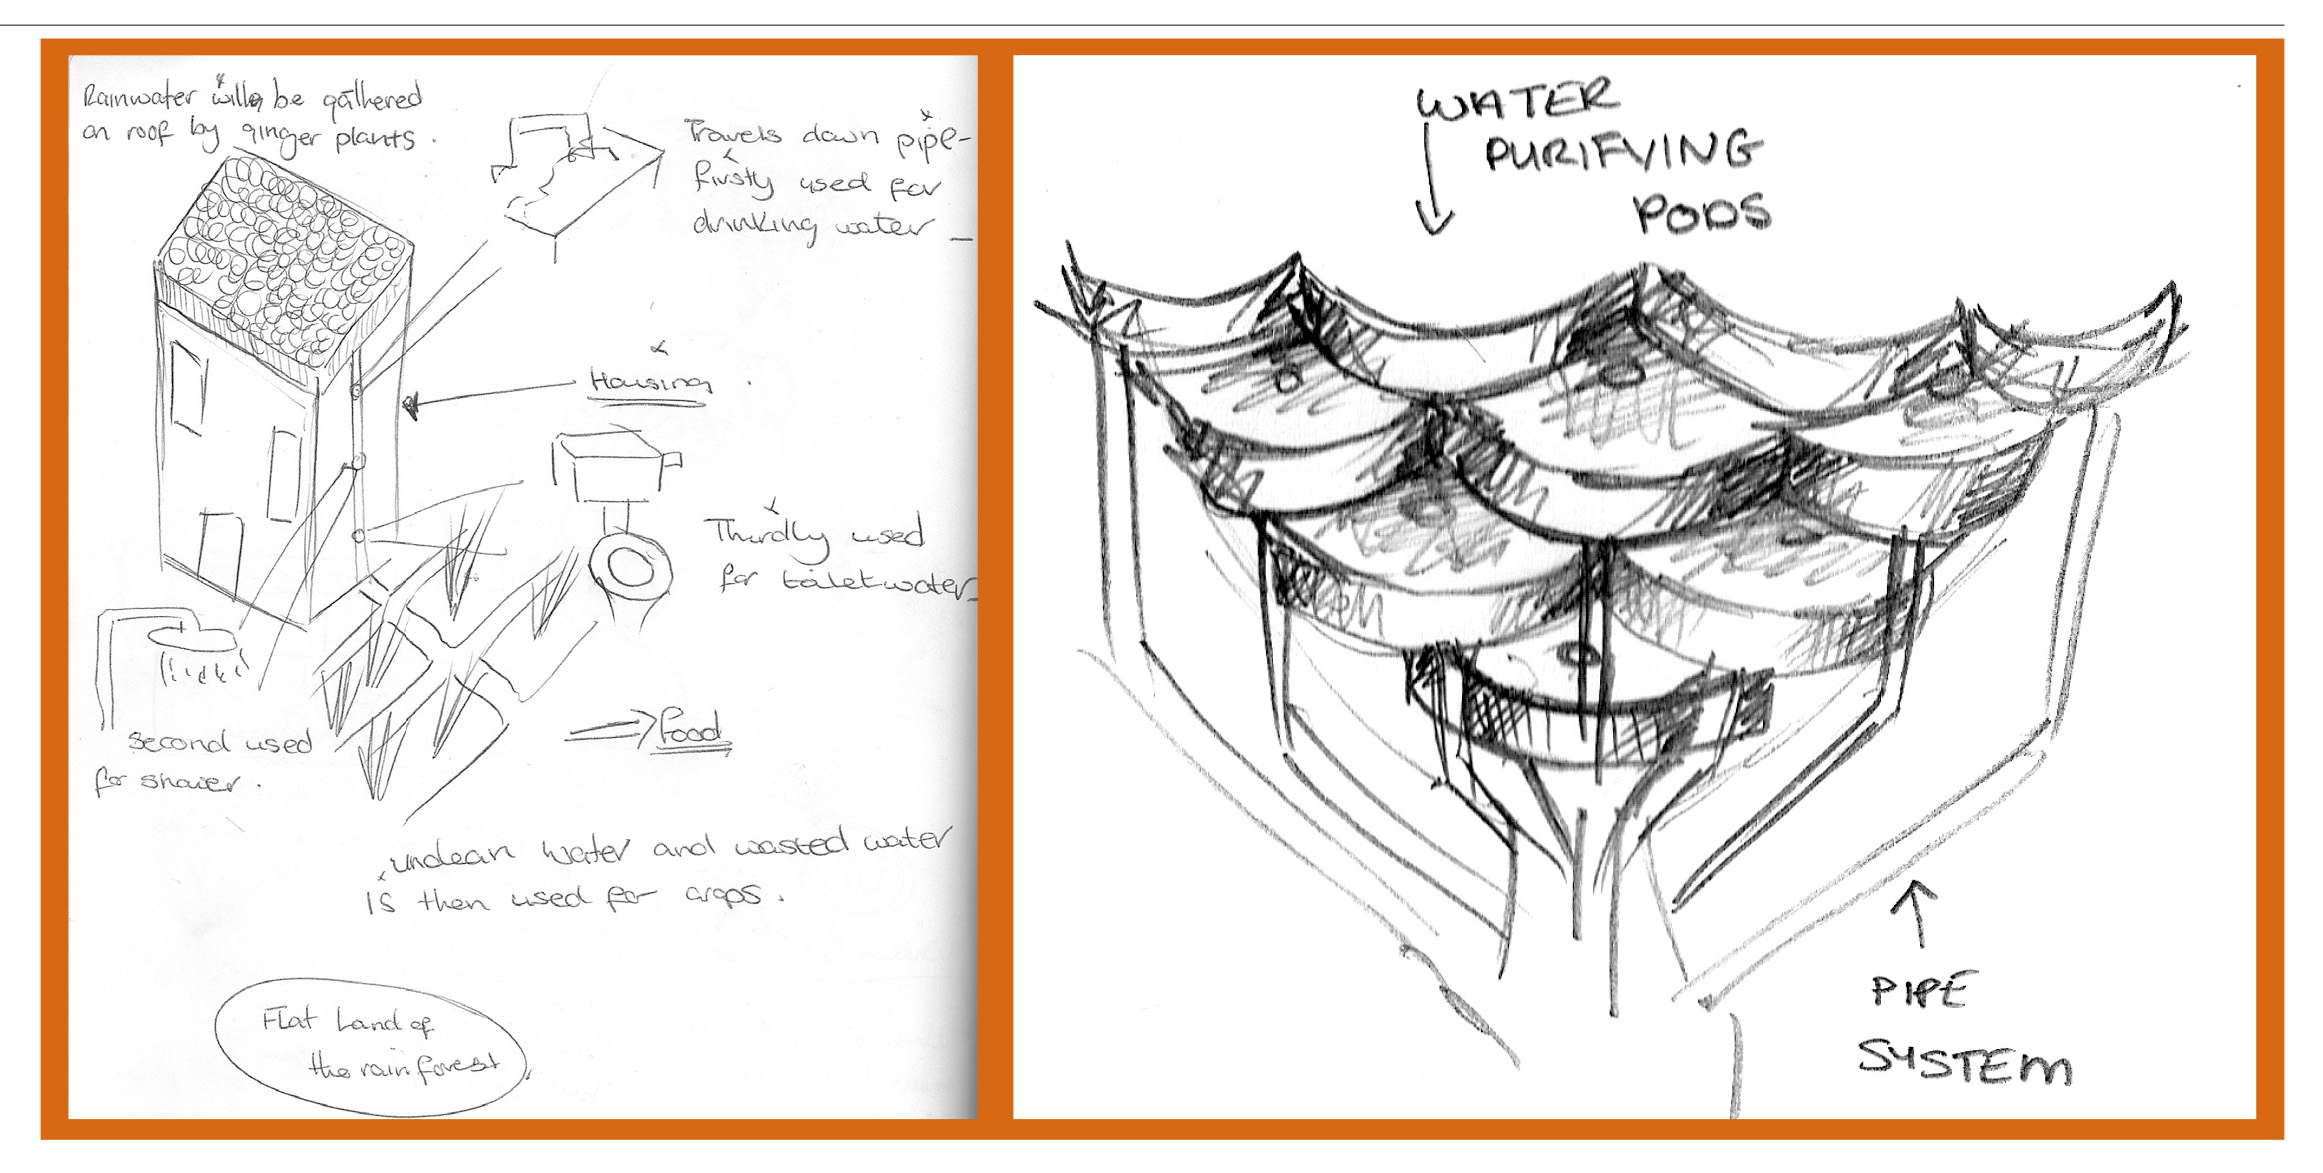 Rainwater will be gathered
on roof by ginger plants.
Travels down pipe-
firstly used for
drinking water -
Housing.
Thirdly used
for toilet water-
second used
for shower.
Food
unclean water and wasted water
is then used for crops.
Flat Land of
the rainforest
WATER
PURIFYING
PODS
PIPE
SYSTEM